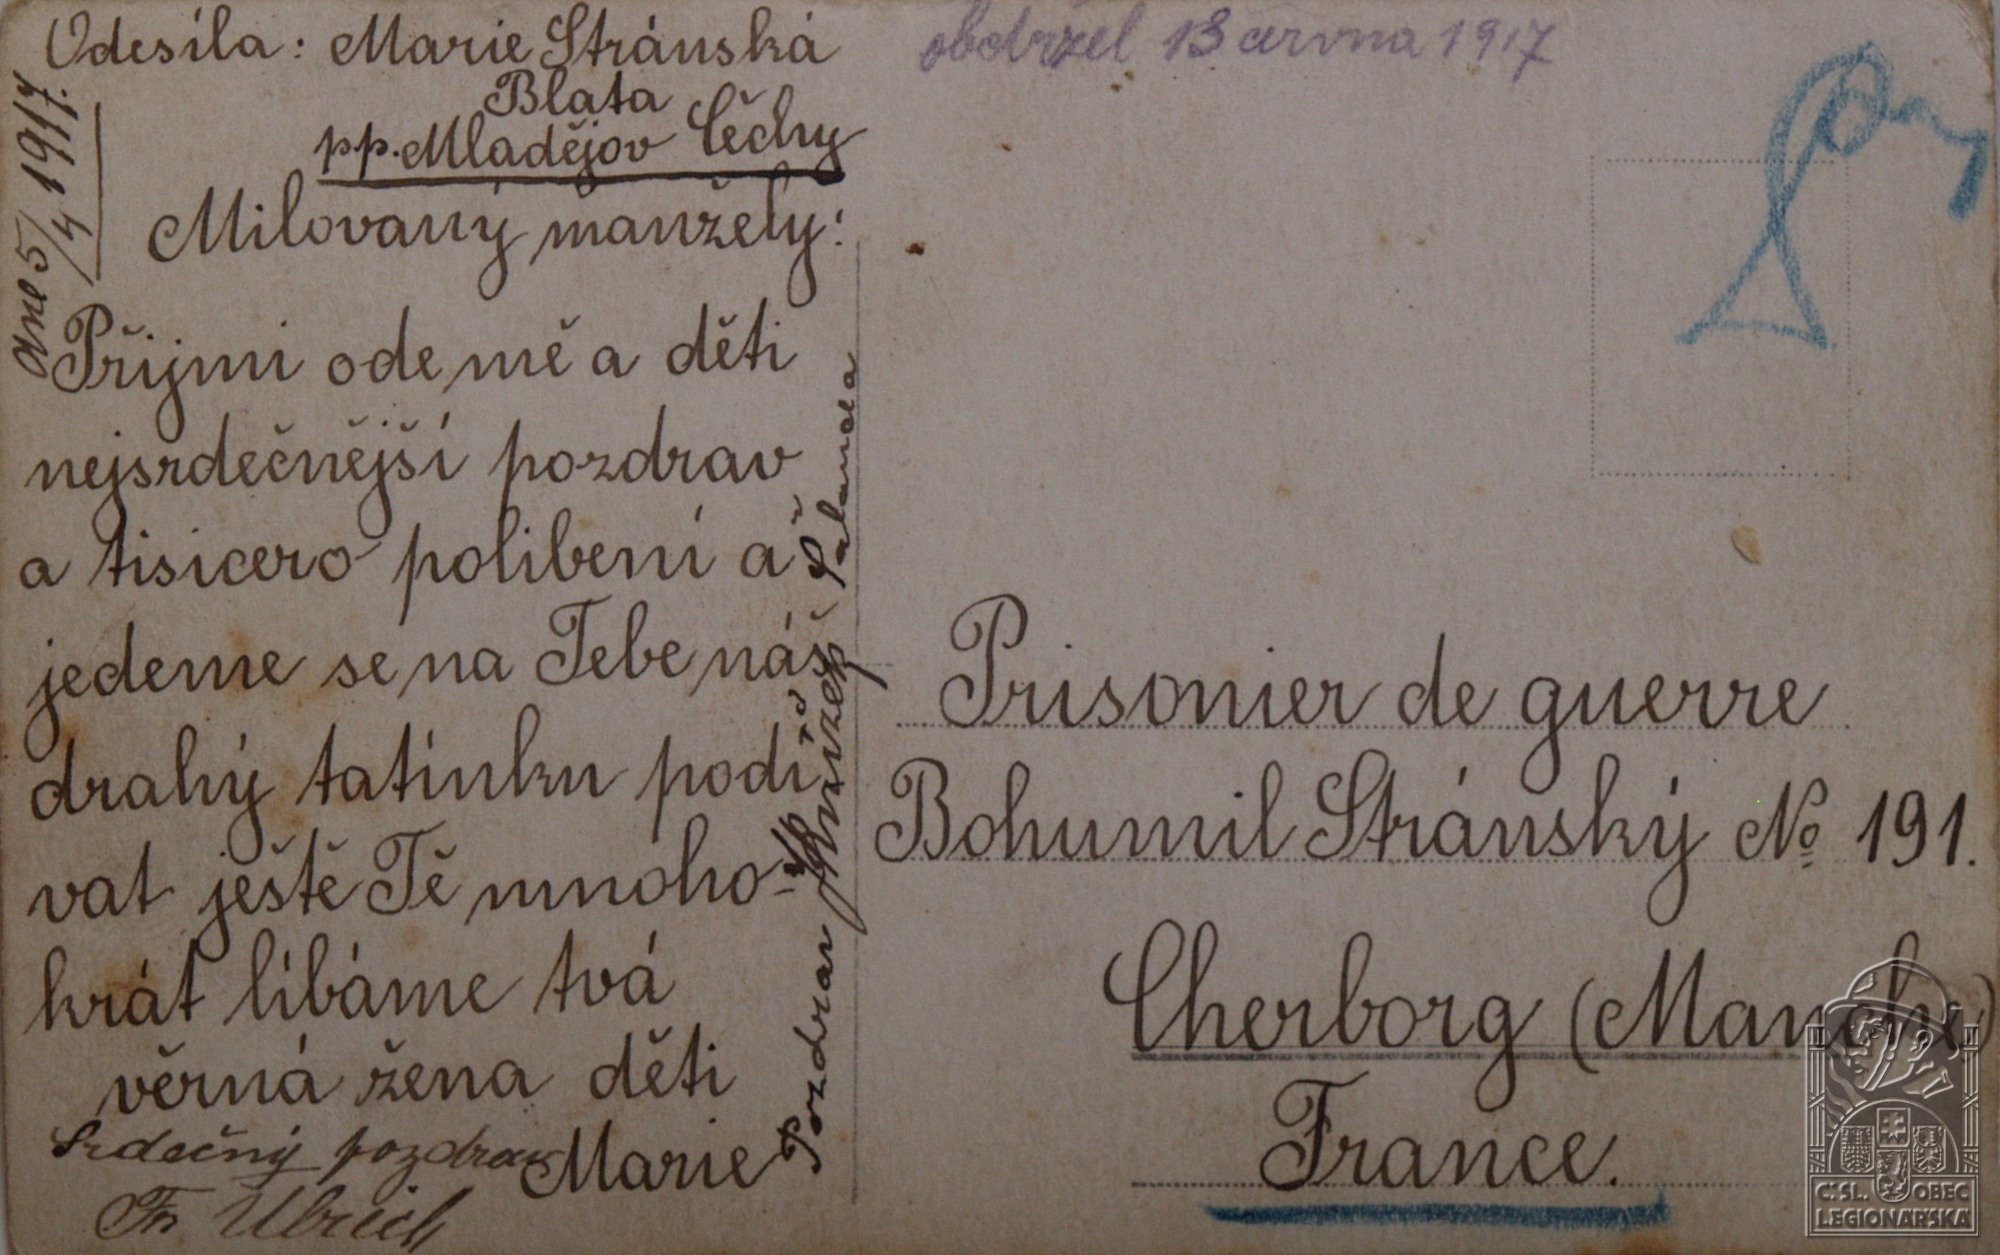 Odesíla: Marie Stránská
Blata
pp. Mladějov Čěchy
dne 5/4 1917.
Milovaný manžely:
Přijmi ode mě a děti
nejsrdečnější pozdrav
a tisicero polibení a
jedeme se na Tebe náš
drahý tatínku podí
vat ještě Tě mnoho-
krát líbáme tvá
věrná žena děti
Marie
Srdečný pozdrav
Fr. Ulrich
Pozdrav
obdržel 13 června 1917
Prisonier de guerre
Bohumil Stránský No 191.
Cherborg (Manche)
France.
Č.SL. OBEC
LEGIONÁŘSKÁ